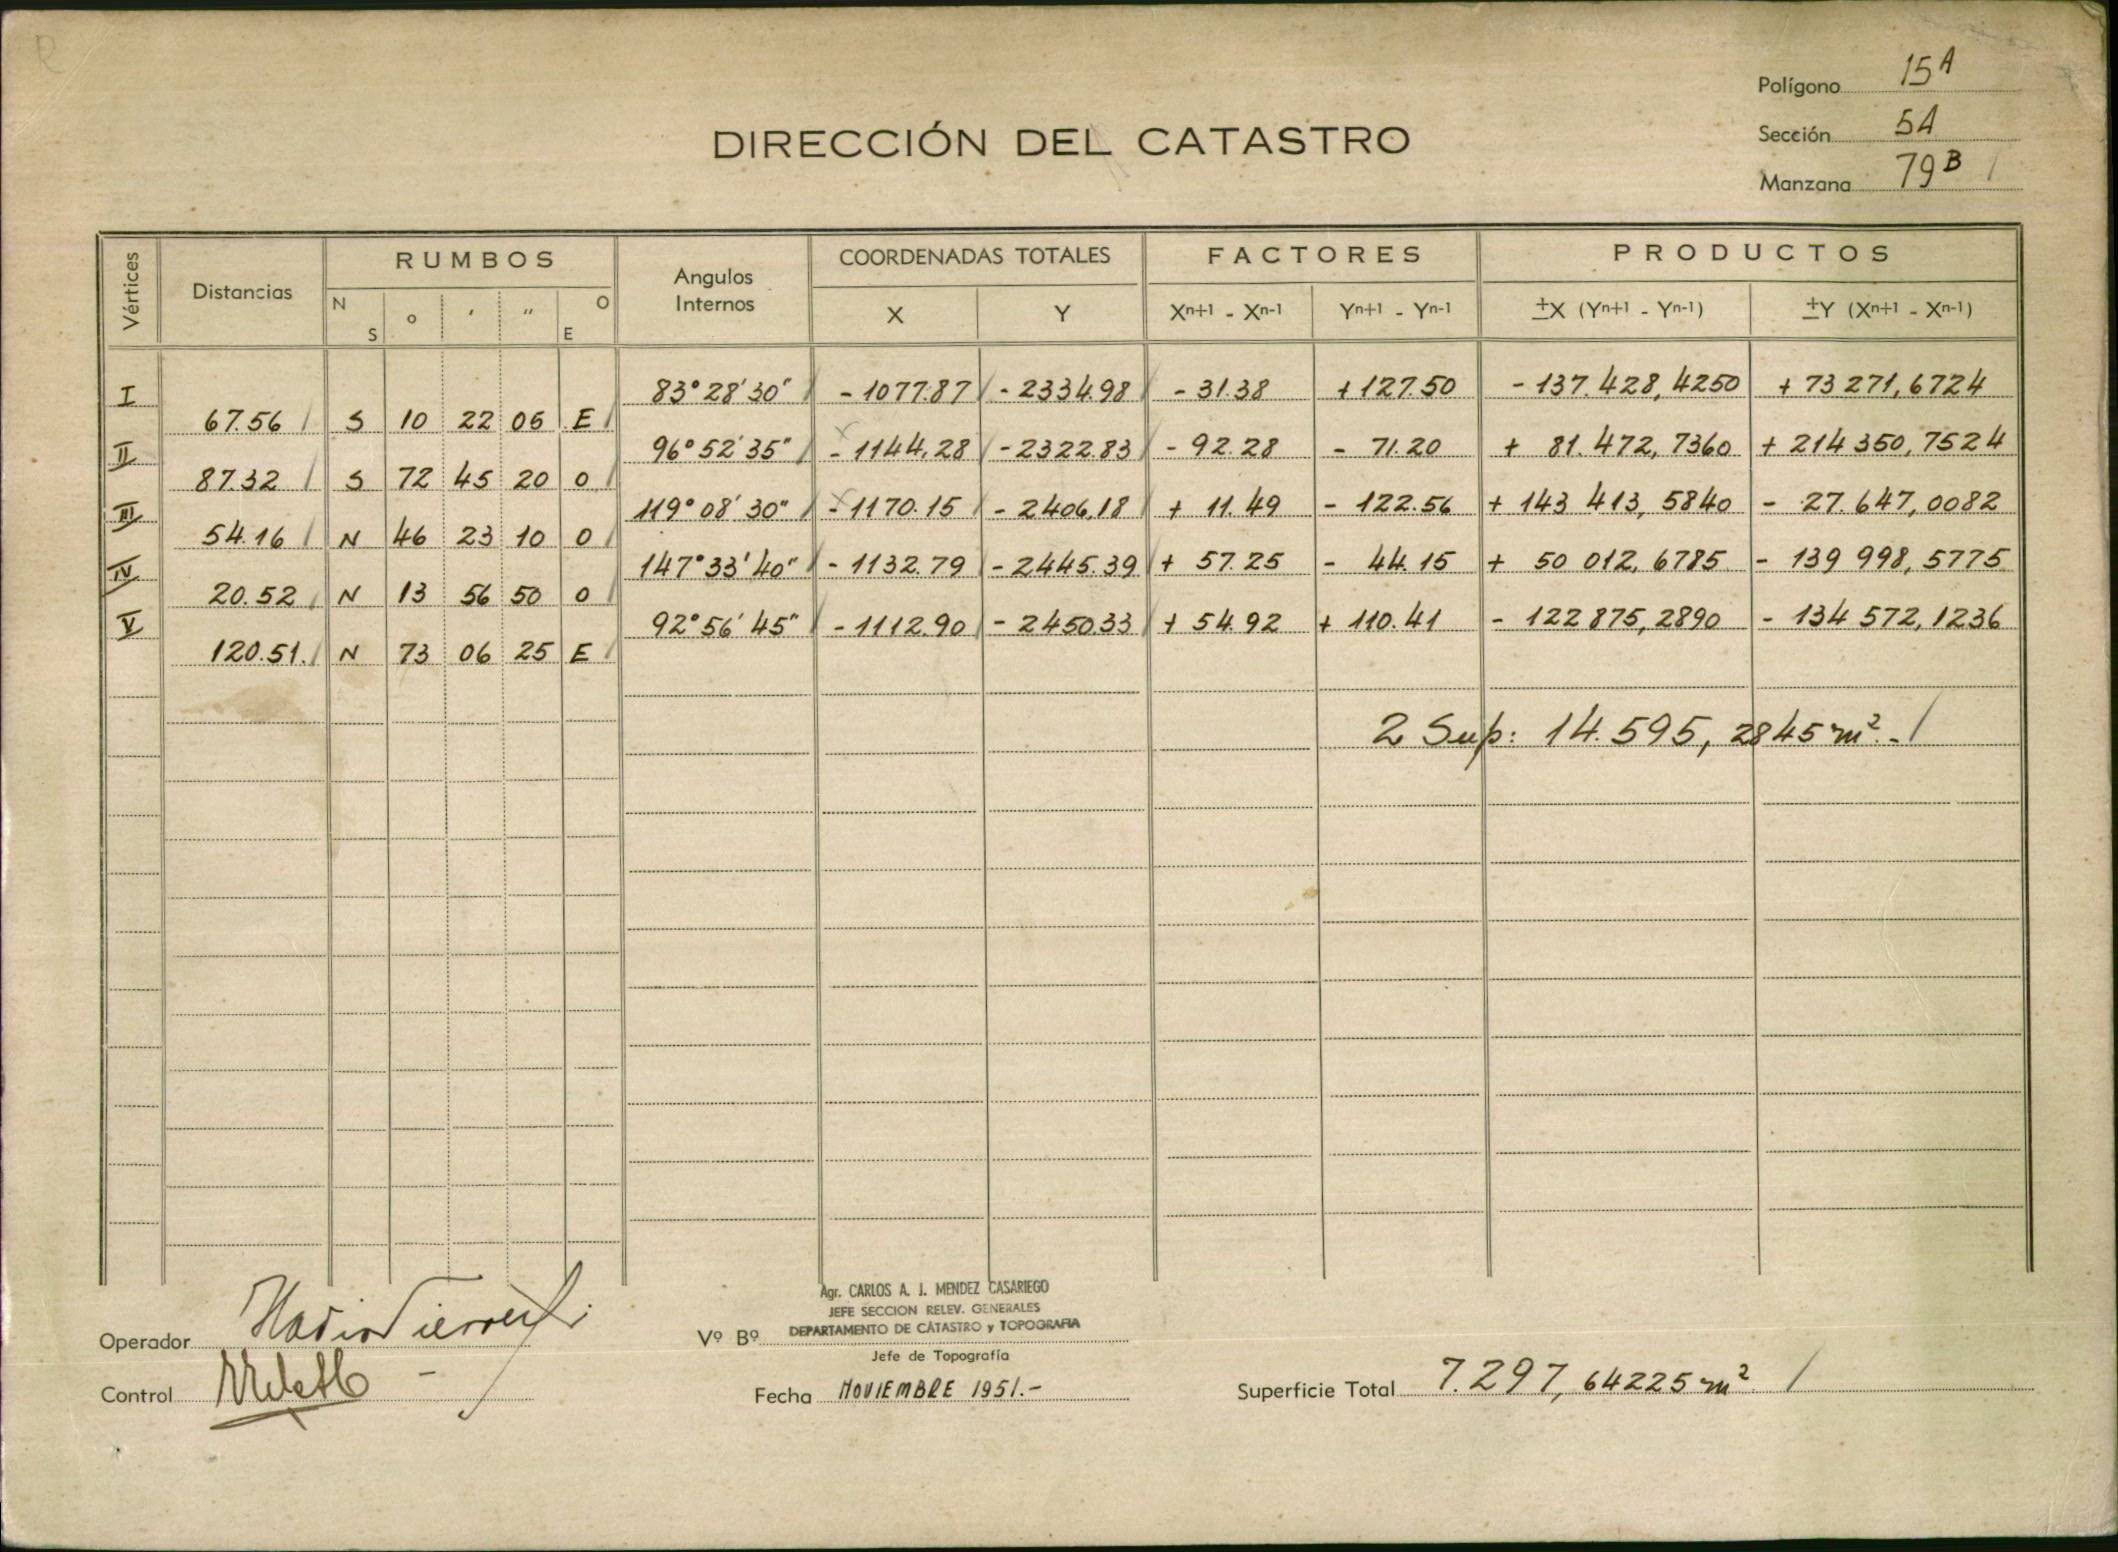 Polígono 15A
DIRECCIÓN DEL CATASTRO
Sección 5A
Manzana 79B
Vértices Distancias RUMBOS Angulos Internos COORDENADAS TOTALES FACTORES PRODUCTOS
N S ° ' " O E X Y Xn+1 - Xn-1 Yn+1 - Yn-1 ±X (Yn+1 - Yn-1) ±Y (Xn+1 - Xn-1)
I 83° 28' 30" - 1077.87 - 2334.98 - 31.38 + 127.50 - 137.428,4250 + 73 271,6724
67.56 S 10 22 05 E
II 96° 52' 35" - 1144,28 - 2322.83 - 92.28 - 71.20 + 81.472,7360 + 214 350,7524
87.32 S 72 45 20 O
III 119° 08' 30" - 1170.15 - 2406,18 + 11.49 - 122.56 + 143 413,5840 - 27.647,0082
54.16 N 46 23 10 O
IV 147° 33' 40" - 1132.79 - 2445.39 + 57.25 - 44.15 + 50 012,6785 - 139 998,5775
20.52 N 13 56 50 O
V 92° 56' 45" - 1112.90 - 2450.33 + 54.92 + 110.41 - 122 875,2890 - 134 572,1236
120.51. N 73 06 25 E
2 Sup: 14.595,2845 m².-
Agr. CARLOS A. J. MENDEZ CASARIEGO
JEFE SECCION RELEV. GENERALES
DEPARTAMENTO DE CATASTRO y TOPOGRAFIA
Operador
Vº Bº
Jefe de Topografía
Control
Fecha NOVIEMBRE 1951.-
Superficie Total 7.297,64225 m²